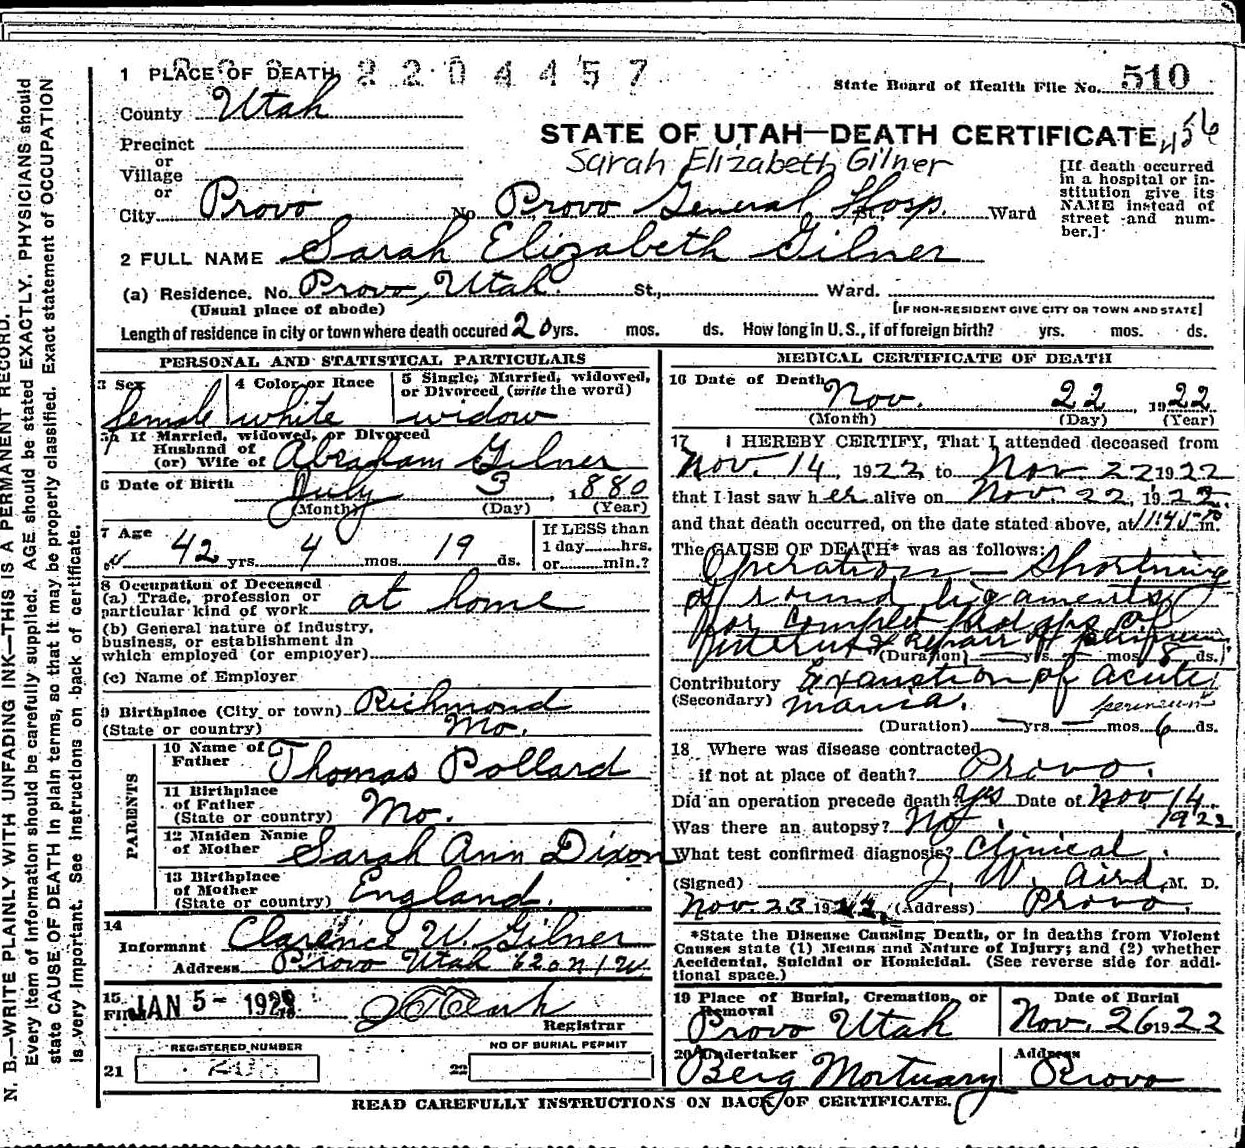 1 PLACE OF DEATH 2204457
State Board of Health File No. 510
County Utah
STATE OF UTAH—DEATH CERTIFICATE 456
Precinct
or
Village
or
Sarah Elizabeth Gilner
[If death occurred in a hospital or in-
stitution give its
NAME instead of
street and num-
ber.]
City Provo No. Provo General Hosp. St. Ward
2 FULL NAME Sarah Elizabeth Gilner
(a) Residence. No. Provo, Utah. St., Ward.
(Usual place of abode)
[IF NON-RESIDENT GIVE CITY OR TOWN AND STATE]
Length of residence in city or town where death occured 20 yrs. mos. ds. How long in U. S., if of foreign birth? yrs. mos. ds.
PERSONAL AND STATISTICAL PARTICULARS
3 Sex female
4 Color or Race white
5 Single, Married, widowed,
or Divorced (write the word)
widow
5a If Married, widowed, or Divorced
Husband of
(or) Wife of Abraham Gilner
6 Date of Birth July 3, 1880
(Month) (Day) (Year)
7 Age 42 yrs. 4 mos. 19 ds.
If LESS than
1 day......hrs.
or......min.?
8 Occupation of Deceased
(a) Trade, profession or
particular kind of work at home
(b) General nature of industry,
business, or establishment in
which employed (or employer)
(c) Name of Employer
9 Birthplace (City or town) Richmond
(State or country) Mo.
PARENTS
10 Name of
Father Thomas Pollard
11 Birthplace
of Father
(State or country) Mo.
12 Maiden Name
of Mother Sarah Ann Dixon
13 Birthplace
of Mother
(State or country) England.
14
Informant Clarence W. Gilner
Address Provo Utah 620 N 1 W.
15
JAN 5 - 192
Registrar
REGISTERED NUMBER
21
NO OF BURIAL PERMIT
22
MEDICAL CERTIFICATE OF DEATH
16 Date of Death Nov. 22, 1922
(Month) (Day) (Year)
17 I HEREBY CERTIFY, That I attended deceased from
Nov. 14, 1922, to Nov. 22 1922
that I last saw her alive on Nov. 22, 1922.
and that death occurred, on the date stated above, at 11:45 m.
The CAUSE OF DEATH* was as follows:
Operation — Shortning
of round ligaments
for complet prolaps of
uterus & repair of perineum
(Duration) — yrs. — mos. 8 ds.
Contributory Exaustion of acute
(Secondary) mania. perineum
(Duration) — yrs — mos. 6 ds.
18 Where was disease contracted
if not at place of death? Provo.
Did an operation precede death? Yes Date of Nov 14
1922
Was there an autopsy? No.
What test confirmed diagnosis? Clinical.
(Signed) J. W. Aird, M. D.
Nov. 23 1922, (Address) Provo.
*State the Disease Causing Death, or in deaths from Violent
Causes state (1) Means and Nature of Injury; and (2) whether
Accidental, Suicidal or Homicidal. (See reverse side for addi-
tional space.)
19 Place of Burial, Cremation, or
Removal
Provo Utah
Date of Burial
Nov. 26 1922
20 Undertaker
Berg Mortuary
Address
Provo
READ CAREFULLY INSTRUCTIONS ON BACK OF CERTIFICATE.
N. B.—WRITE PLAINLY WITH UNFADING INK—THIS IS A PERMANENT RECORD.
Every item of information should be carefully supplied. AGE should be stated EXACTLY. PHYSICIANS should
state CAUSE OF DEATH in plain terms, so that it may be properly classified. Exact statement of OCCUPATION
is very important. See instructions on back of certificate.